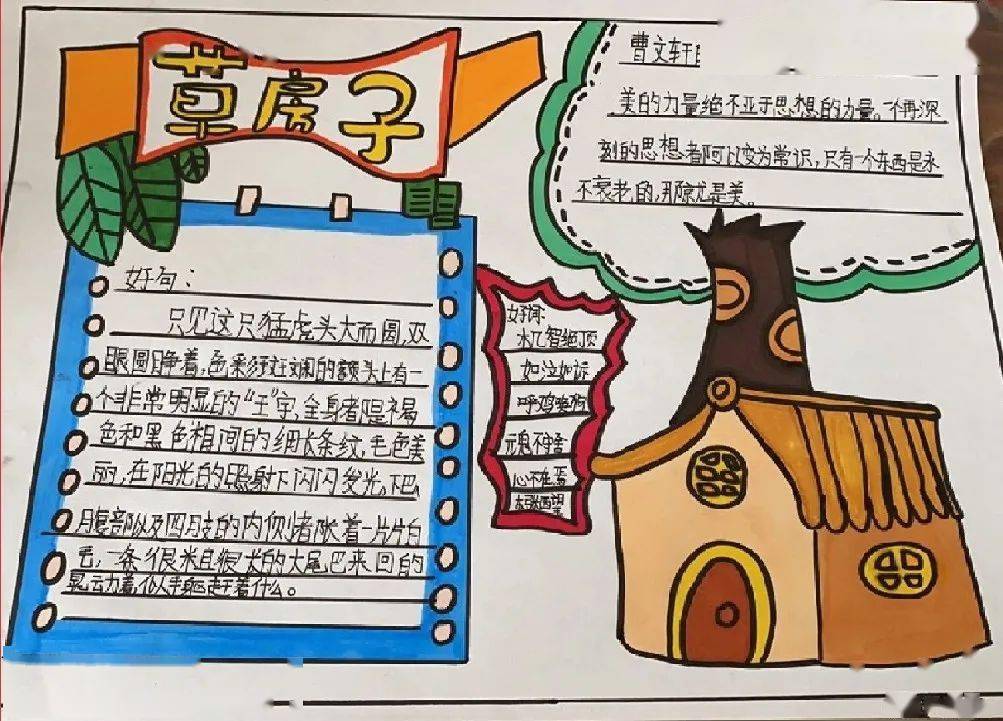 草房子
曹文轩
美的力量绝不亚于思想的力量。一个再深
刻的思想者阿以变为常识，只有一个东西是永
不衰老的，那就是美。
好句：
只见这只猛虎头大而圆，双
眼圆睁着，色彩斑斓的额头上有一
个非常明显的“王”字，全身都是褐
色和黑色相间的细长条纹，毛色美
丽，在阳光的照射下闪闪发光。下巴、
腹部以及四肢的内侧都长着一片片白
毛，一条很长的大尾巴来回的
晃动着，似乎在赶着什么。
好词：
水丫智绝顶
如泣如诉
呼鸡唤狗
魂不守舍
心不在焉
东张西望